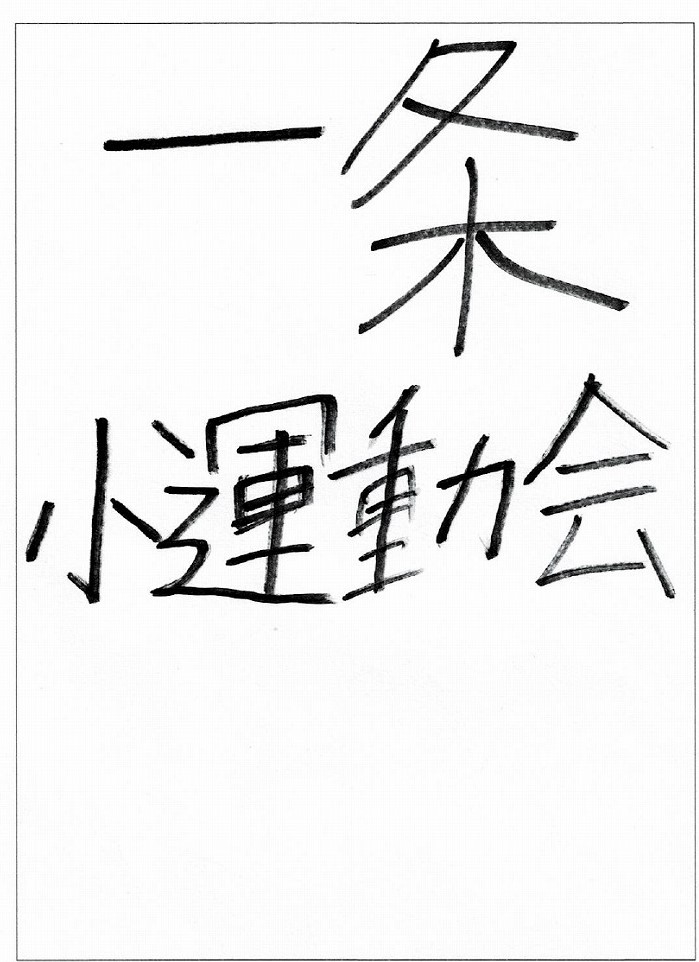 一条
小運動会